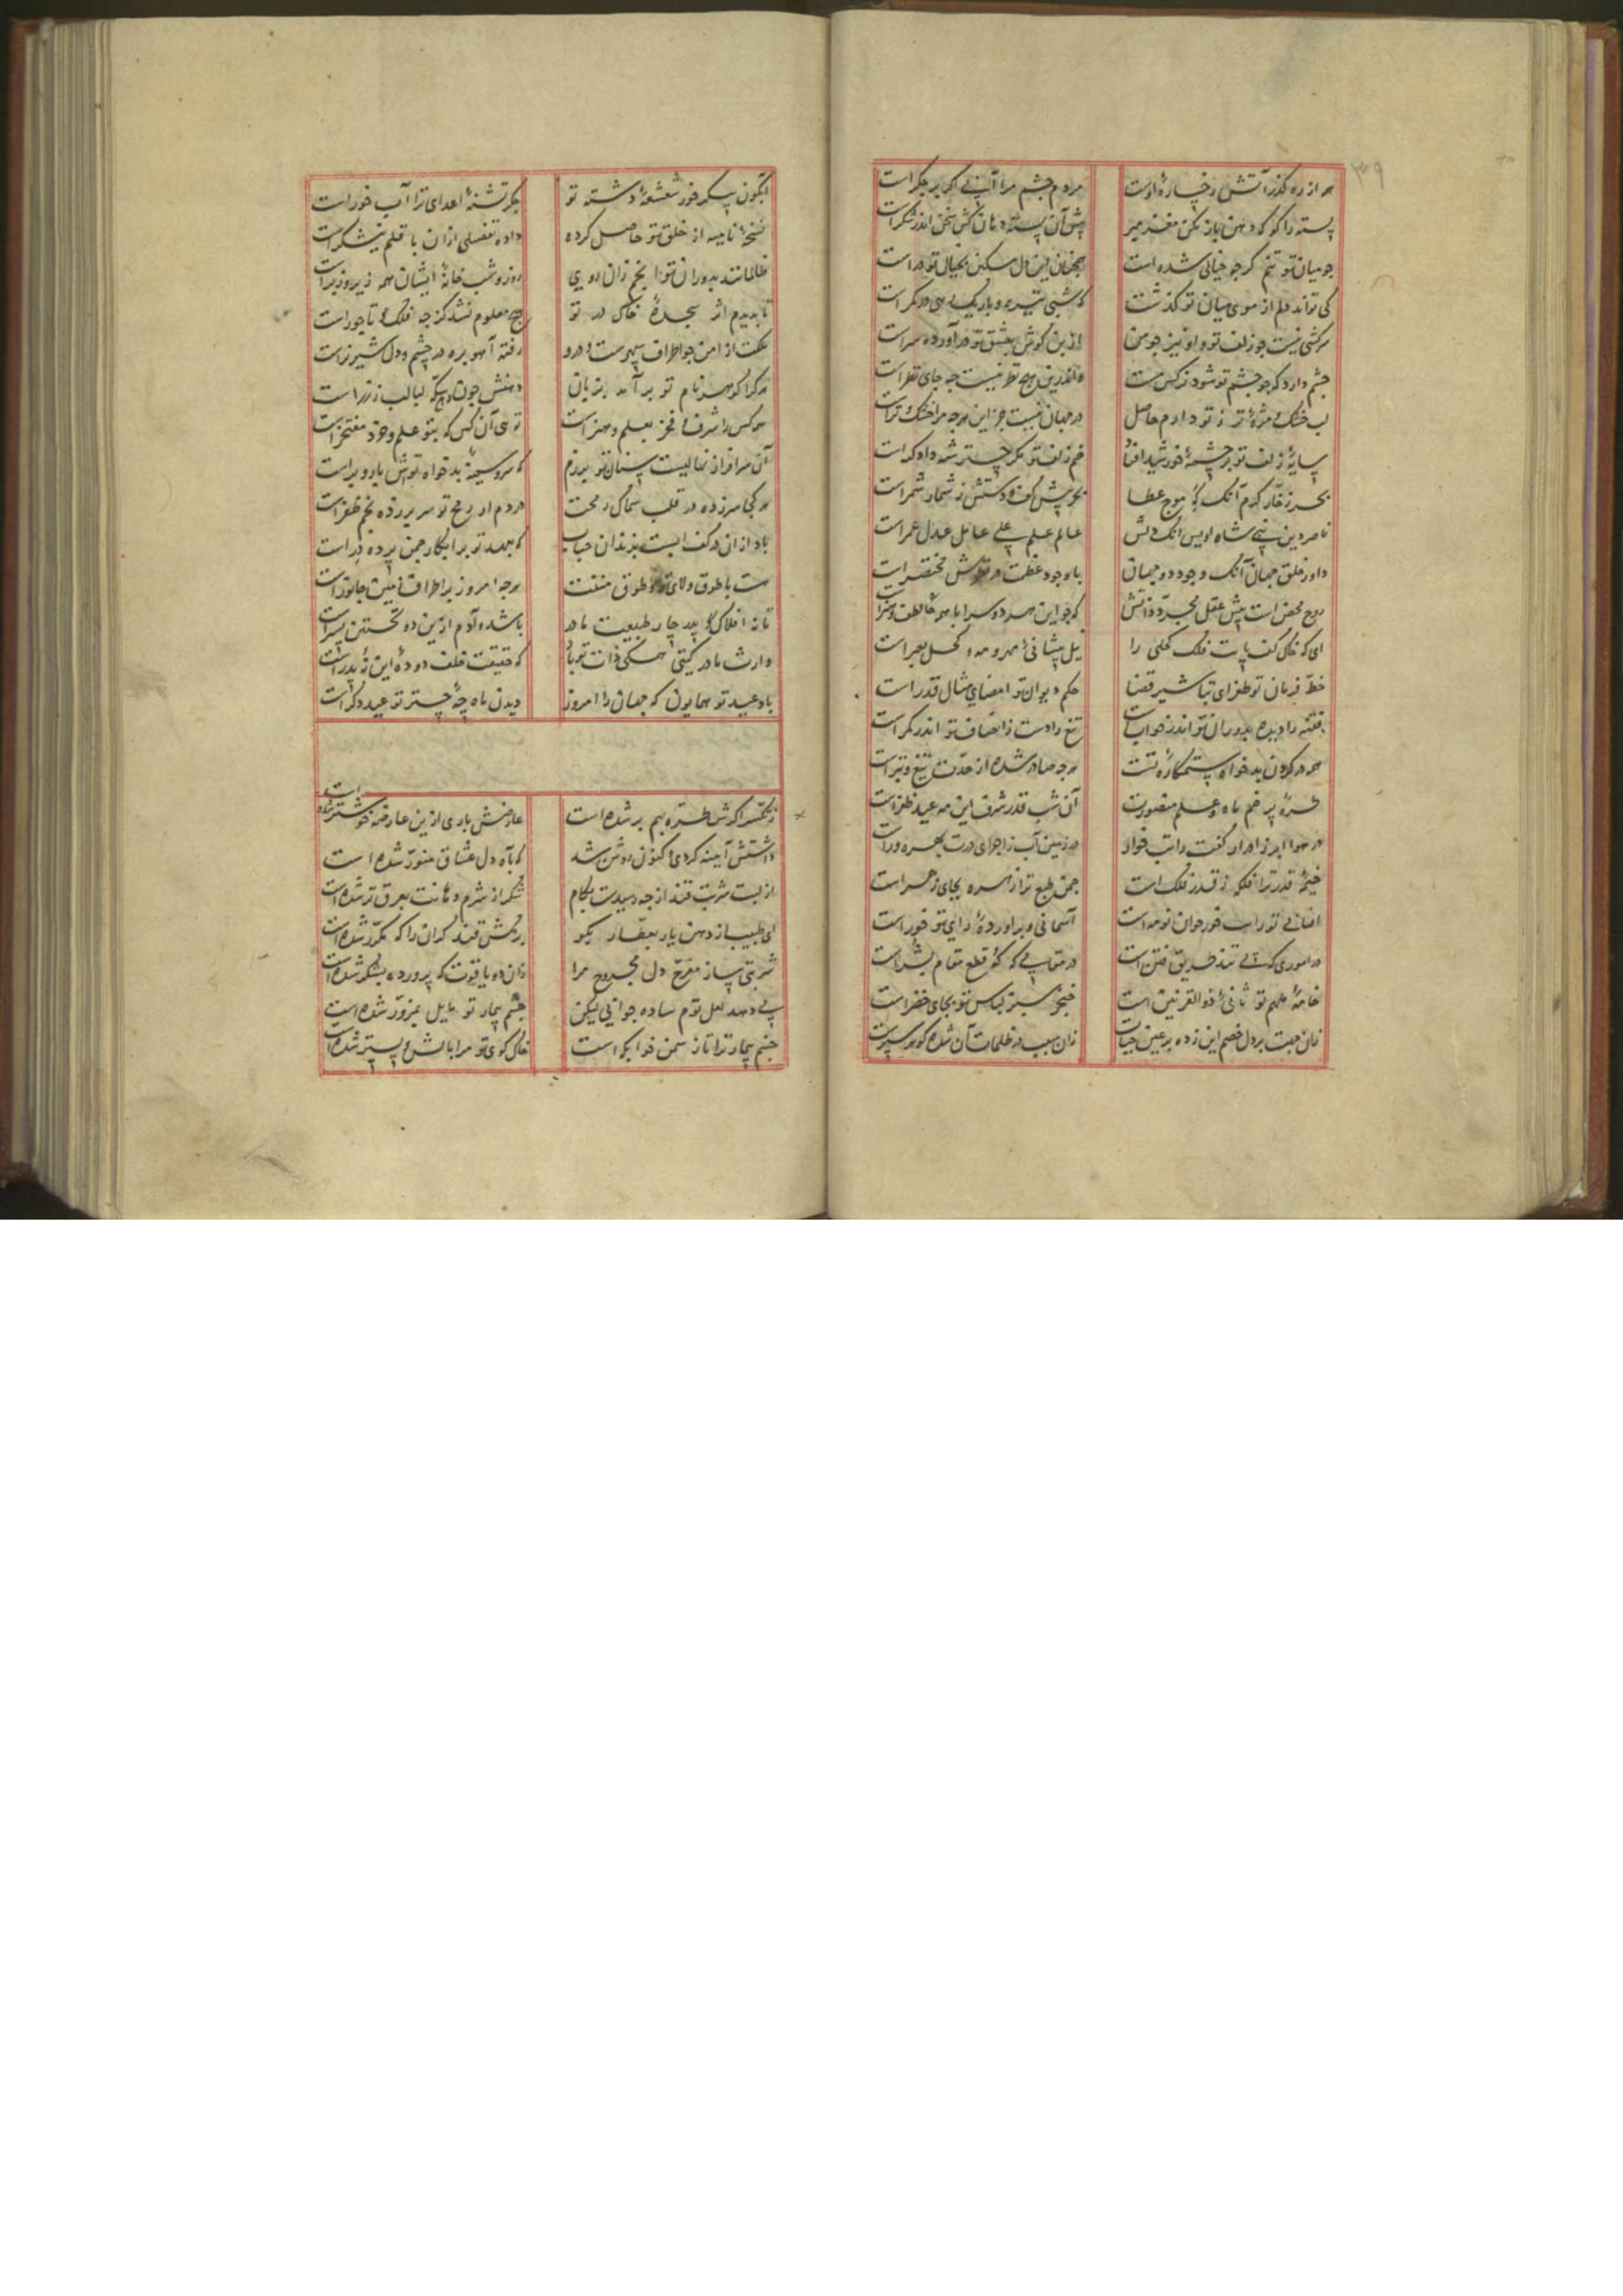 ۳۹
همه از ره گذر آتش رخساره اوست
مردم چشم مرا آبی اگر بر جگر است
پسته را کو که دهن باز مکن مغز مبر
پیش آن پسته دهان کش سخن اندر شکر است
جو میان تو تنم کر جو خیالی شده است
همچنان این دل مسکین بخیال تو در است
کی تواند دلم از موی میان تو گذشت
که شبی تیره و باریک رهی در کمر است
سرکشی نیست جو زلف تو و او نیز جو من
از بن کوش بعشق تو در آورده سر است
چشم دارد که جو چشم تو شود نرکس مست
و اندرین هیچ نظر نیست جه جای نظر است
لب خشک و مژه تر ز تو دارم حاصل
در جهان نیست جز این هرجه مرا خشک و تر است
سایه زلف تو بر چشمه خورشید افتاد
خم زلف تو مکر چتر شه دادکر است
بحر زخار کرم آنک که موج عطا
بحر پیش کف و دستش ز شمار شمر است
ناصر دین نبی شاه اویس آنک دلش
عالم علم علی عامل عدل عمر است
داور خلق جهان آنک وجود دو جهان
با وجود عظمت در نظرش مختصر است
روح محض است پیش عقل مجرد ذاتش
که جو این هر دو سراپا همه لطف و هنر است
ای که خاک کف پایت فلک کحلی را
نیل پیشانی مهر و مه و کحل بصر است
خط فرمان تو طغرای تباشیر قضا
حکم دیوان تو امضای مثال قدر است
فتنه را دیده بدوران تو اندر خواب است
تیغ را دست ز انصاف تو اندر کمر است
همه در کردن بدخواه ستمکاره تست
هرجه صادر شده از حدت تیغ و تبر است
طره پرخم ماه علم منصورت
آن شب قدر شرف این مه عید ظفر است
در هوا ابر ز ادرار کفت راتب خوار
در زمین آب ز اجرای درت بهره ور است
خیمه قدر ترا فلکه ز قدر فلک است
جمن طبع ترا زهره بجای زهر است
آسمانی و برآورده رای تو خور است
در اموری که
در مقامی که قطع مقام
خامه ملهم تو ثانی ذوالقرنین است
خنجر سبز لباس تو بجای خضر است
زان سبب در ظلمات آن شده کوهر سپر است
آبگون پیکر خور شعشعه دشنه تو
جگر تشنه اعدای ترا آب خور است
نسخه نامیه از خلق تو حاصل کرده
داده تفصیلی از آن با قلم نیشکر است
ظالمانند بدوران تو انجم زان روی
روز و شب خانه ایشان همه زیر و زبر است
تا ندیدم اثر سجده خاک در تو
هیچ معلوم نشد کز جه فلک تاجور است
رفته آهو بره در چشم و دل شیر نر است
هر کرا کوهر نام تو بر آمد بزبان
دهنش چون لبالب ز زر است
هر کس را شرف و فخر بعلم و هنر است
توئی آن کس که بتو علم و خرد مفتخر است
آن سرافراز نهالیست سنان تو برزم
که سر و سینه بدخواه توش باد و بر است
هر کجا سر زده در قلب سماک رمحت
در دم از رمح تو سر بر زده نجم ظفر است
هست با طوق ولای تو و طوق منتت
هرجه امروز بر اطراف زمین جانور است
تا نه افلاک پدر چار طبیعت مادر
باشد و آدم ازین ده نخستین پسر است
وارث مادر کیتی همکی ذات تو باد
که حقیقت خلف دوده این نه پدر است
باد عید تو همایون که جهان را امروز
دیدن ماه چه چتر تو عید دکر است
کوش طره بهم بر شده است
عارضش باری ازین عارضه خوشتر شده است
داشتش آینه کردی اکنون روشن شد
که بآه دل عشاق منور شده است
از لبت شربت قند ار جه رسیدت بکام
شکر از شرم دهانت بعرق تر شده است
ای طبیب از دهن یار بعطار بکو
برمکش قند کران را که مکرر شده است
شربتی ساز مفرح دل مجروح مرا
زان دو یاقوت که پرورده بشکر شده است
می دهد لعل توم ساده جوابی لیکن
چشم بیمار تو مایل بمزور شده است
چشم بیمار ترا تا ز سمن خوابکه است
خاک کوی تو مرا بالش و بستر شده است